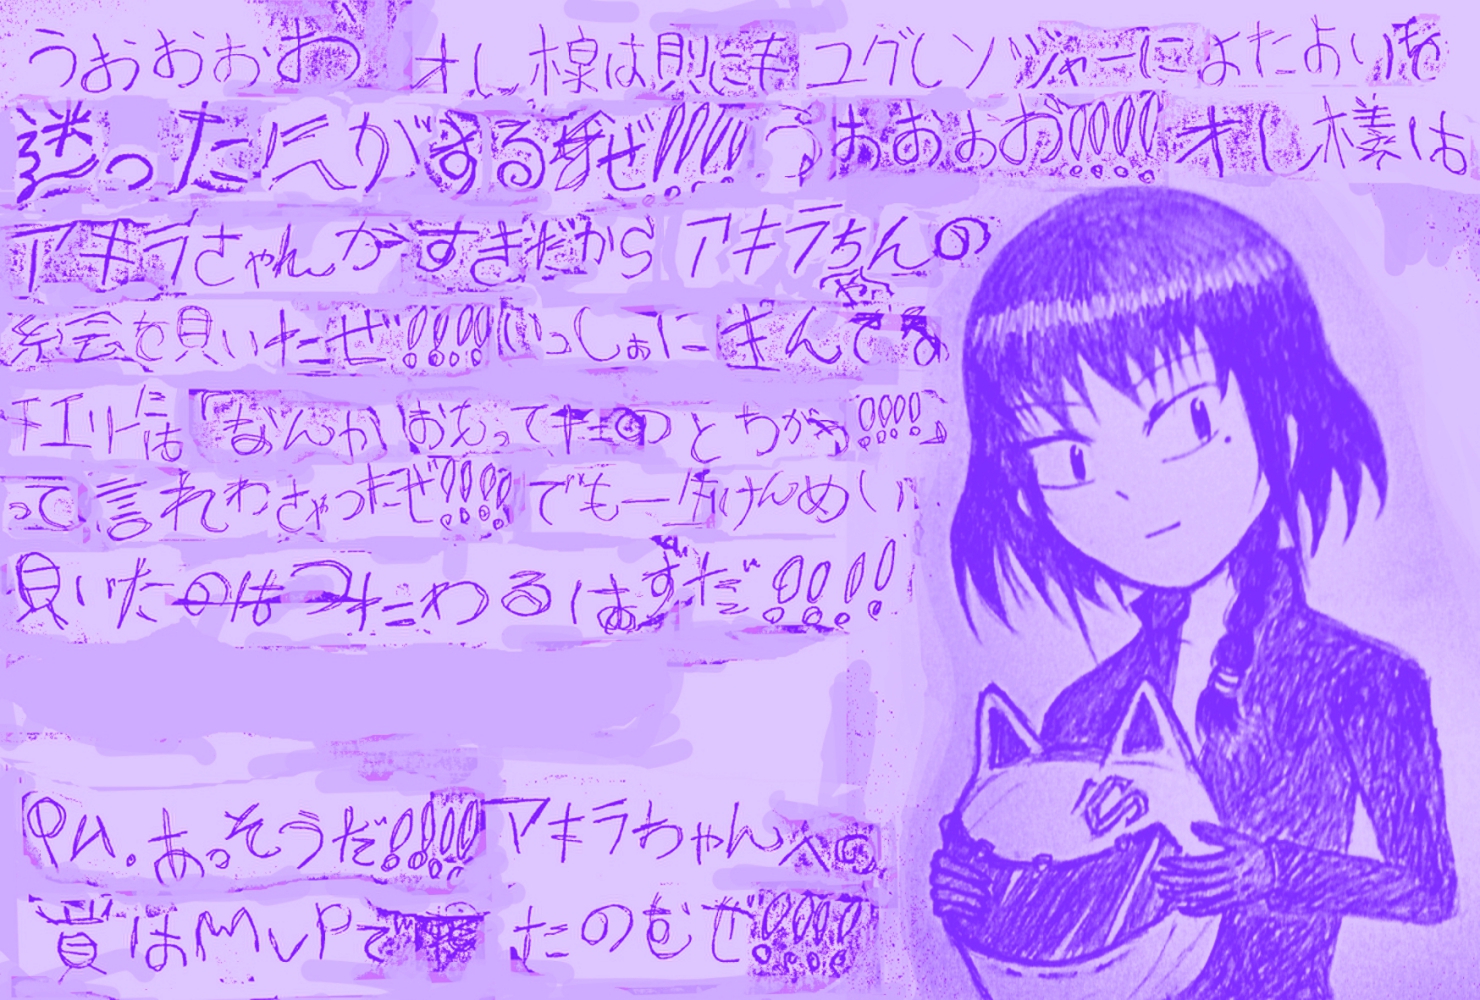 うおおぉお オし様は則にも ユグレンジャーによたよりを
迷った気がするぜ!!!! うおぉぉお!!!! オし様は
アキラさゃんがすきだから アキラちゃんの
絵を貝いたぜ!!!! いっしょに まんでる
エリーには なんか おもってたのとちがう!!!!
って言われちゃったぜ!!!! でも一生けんめい
貝いた つたわるはずだ!!!!
PM.あっそうだ!!!! アキラちゃんへの
貿はMVPで たのむぜ!!!!